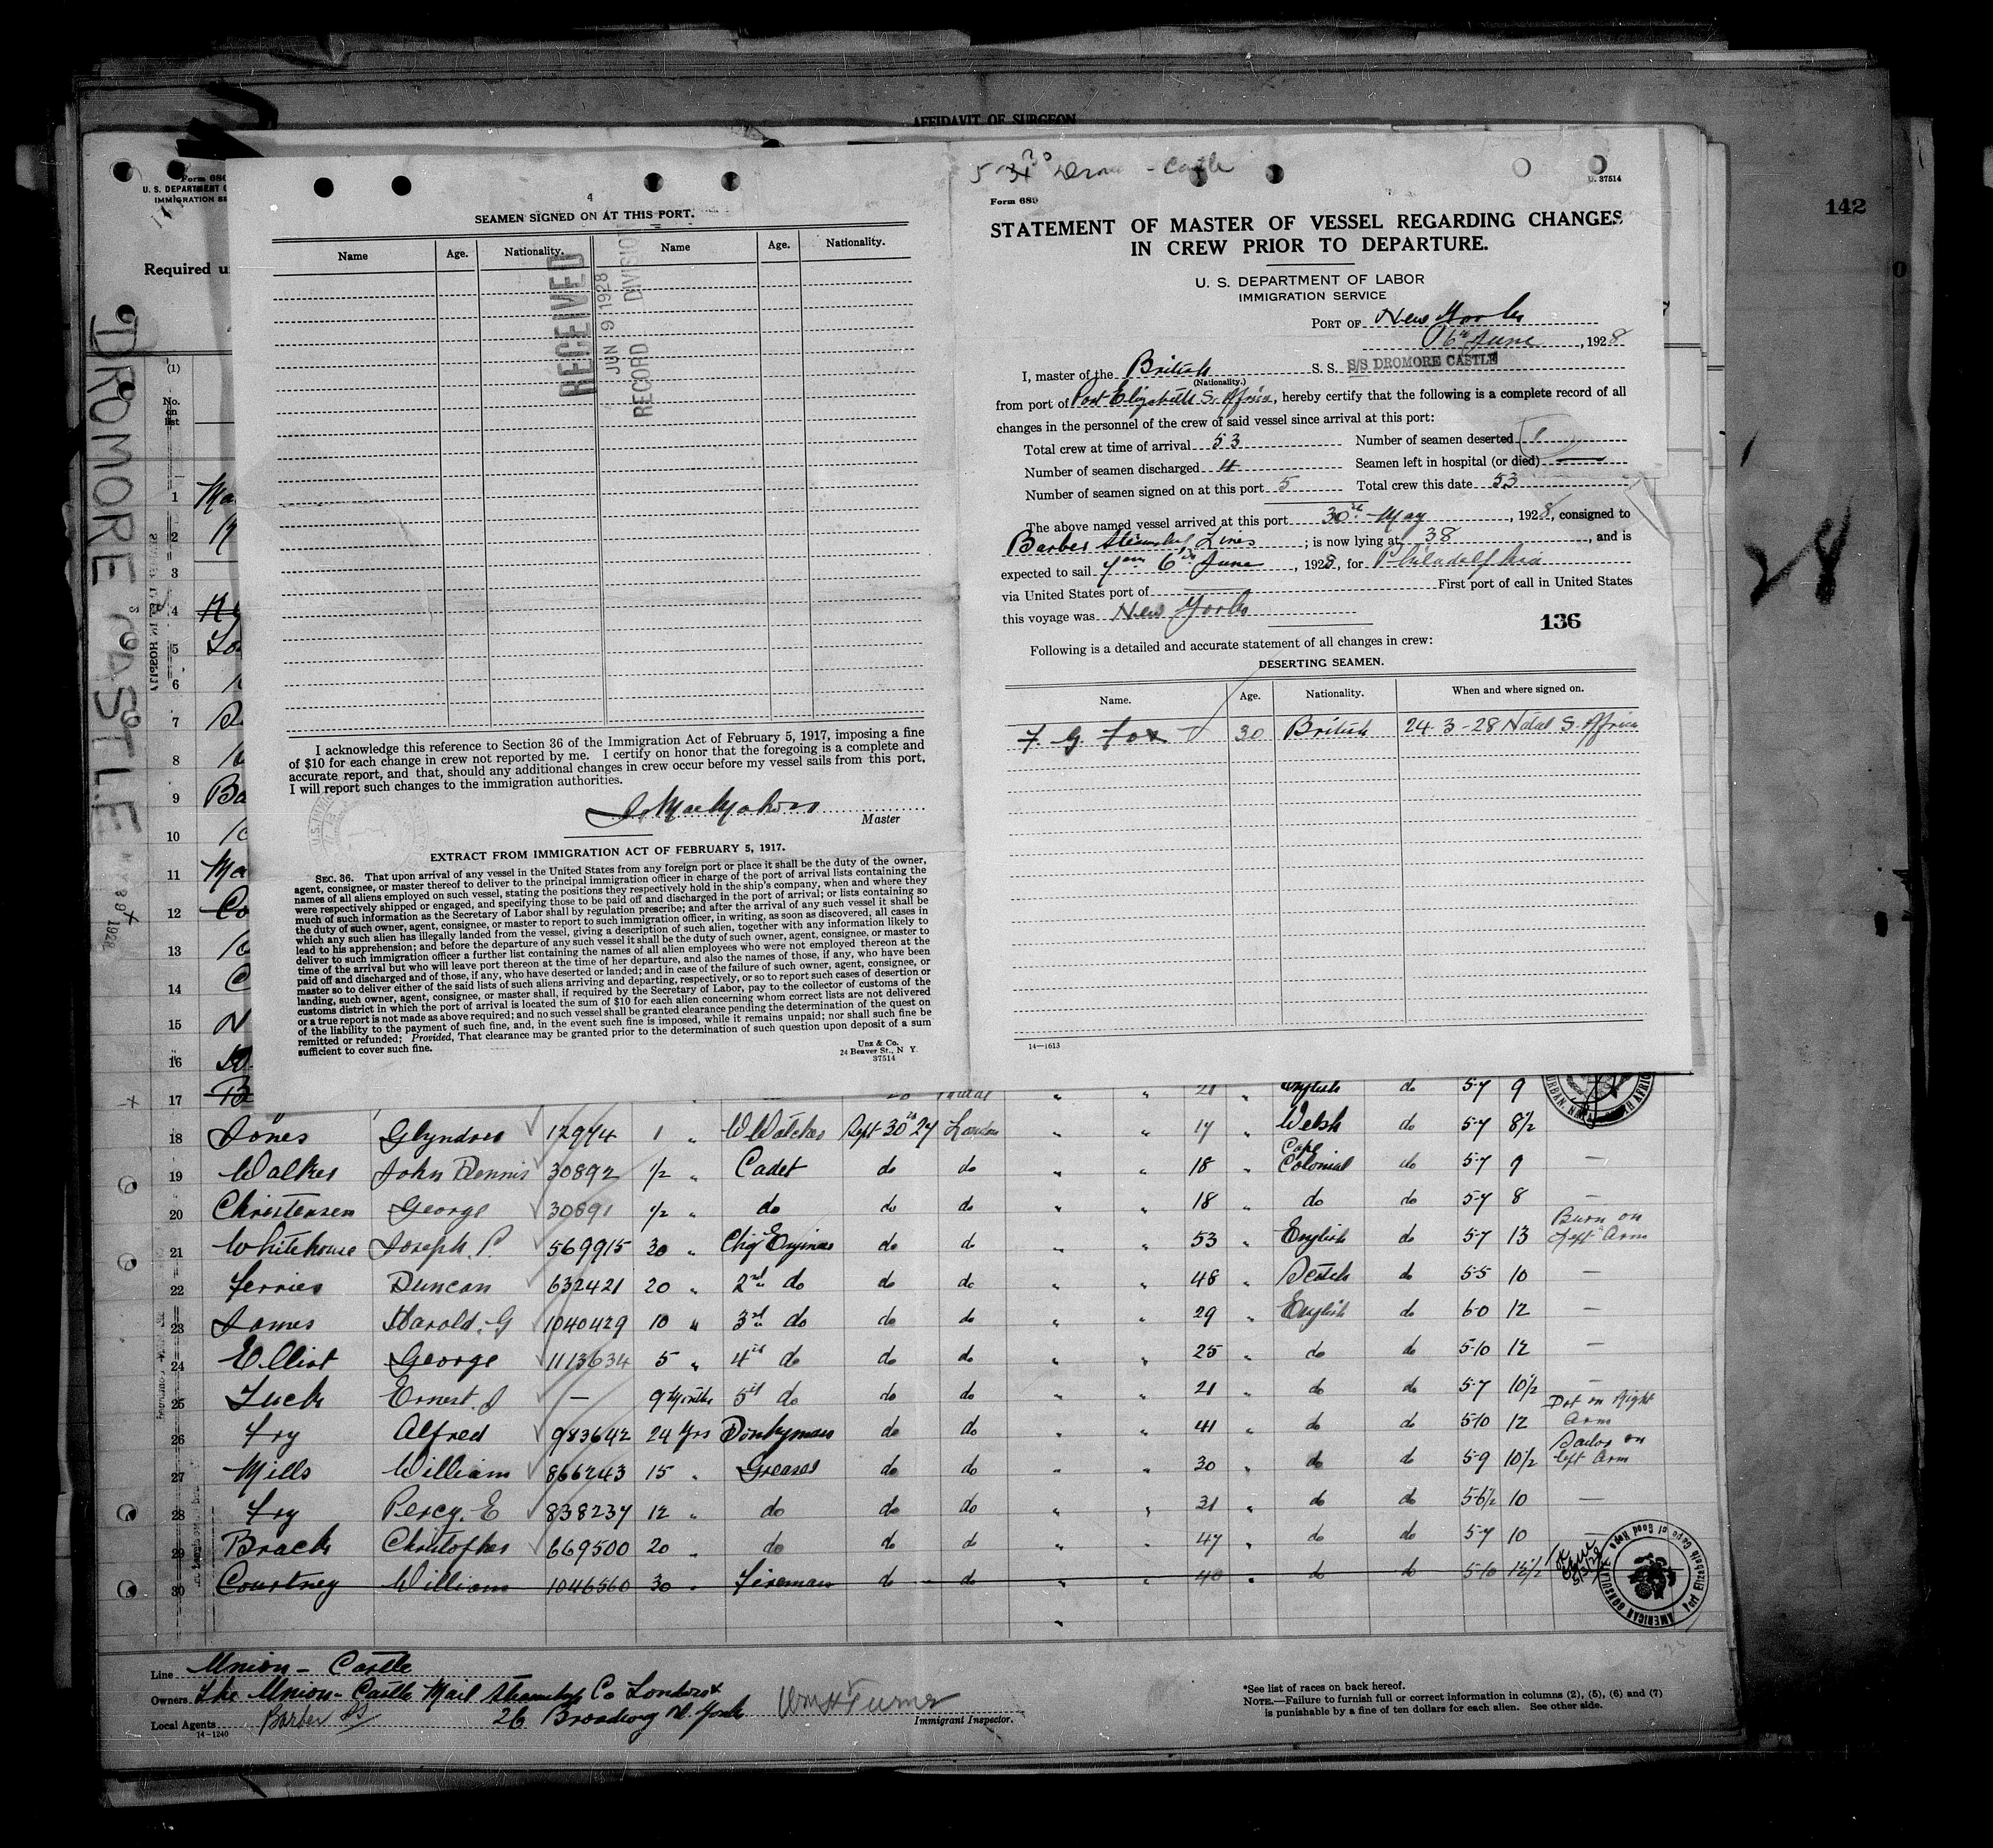 AFFIDAVIT OF SURGEON
142
Form 680
U. S. DEPARTMENT
IMMIGRATION SE
Required u
DROMORE CASTLE
(1)
No.
on
list
4
SEAMEN SIGNED ON AT THIS PORT.
Name Age. Nationality. Name Age. Nationality.
RECEIVED
JUN 9 1928
RECORD DIVISION
I acknowledge this reference to Section 36 of the Immigration Act of February 5, 1917, imposing a fine
of $10 for each change in crew not reported by me. I certify on honor that the foregoing is a complete and
accurate report, and that, should any additional changes in crew occur before my vessel sails from this port,
I will report such changes to the immigration authorities.
Master
EXTRACT FROM IMMIGRATION ACT OF FEBRUARY 5, 1917.
SEC. 36. That upon arrival of any vessel in the United States from any foreign port or place it shall be the duty of the owner,
agent, consignee, or master thereof to deliver to the principal immigration officer in charge of the port of arrival lists containing the
names of all aliens employed on such vessel, stating the positions they respectively hold in the ship's company, when and where they
were respectively shipped or engaged, and specifying those to be paid off and discharged in the port of arrival; or lists containing so
much of such information as the Secretary of Labor shall by regulation prescribe; and after the arrival of any such vessel it shall be
the duty of such owner, agent, consignee, or master to report to such immigration officer, in writing, as soon as discovered, all cases in
which any such alien has illegally landed from the vessel, giving a description of such alien, together with any information likely to
lead to his apprehension; and before the departure of any such vessel it shall be the duty of such owner, agent, consignee, or master to
deliver to such immigration officer a further list containing the names of all alien employees who were not employed thereon at the
time of the arrival but who will leave port thereon at the time of her departure, and also the names of those, if any, who have been
paid off and discharged and of those, if any, who have deserted or landed; and in case of the failure of such owner, agent, consignee, or
master so to deliver either of the said lists of such aliens arriving and departing, respectively, or so to report such cases of desertion or
landing, such owner, agent, consignee, or master shall, if required by the Secretary of Labor, pay to the collector of customs of the
customs district in which the port of arrival is located the sum of $10 for each alien concerning whom correct lists are not delivered
or a true report is not made as above required; and no such vessel shall be granted clearance pending the determination of the quest on
of the liability to the payment of such fine, and, in the event such fine is imposed, while it remains unpaid; nor shall such fine be
remitted or refunded; Provided, That clearance may be granted prior to the determination of such question upon deposit of a sum
sufficient to cover such fine.
Unz & Co.
24 Beaver St., N Y.
37514
Castle
U. 37514
Form 689
STATEMENT OF MASTER OF VESSEL REGARDING CHANGES
IN CREW PRIOR TO DEPARTURE.
U. S. DEPARTMENT OF LABOR
IMMIGRATION SERVICE
PORT OF New York
6th June, 1928
I, master of the British S. S. S/S DROMORE CASTLE
(Nationality.)
from port of Port Elizabeth S. Africa, hereby certify that the following is a complete record of all
changes in the personnel of the crew of said vessel since arrival at this port:
Total crew at time of arrival 53 Number of seamen deserted 1
Number of seamen discharged 4 Seamen left in hospital (or died) —
Number of seamen signed on at this port 5 Total crew this date 53
The above named vessel arrived at this port 30th May, 1928, consigned to
Barber Steamship Lines; is now lying at 38, and is
expected to sail 6th June, 1928, for Philadelphia
via United States port of First port of call in United States
this voyage was New York
136
Following is a detailed and accurate statement of all changes in crew:
DESERTING SEAMEN.
Name. Age. Nationality. When and where signed on.
F. G. Fox 30 British 24-3-28 Natal S. Africa
14—1613
28
1 Ma
2
3
4
5
6
7
8
9 Ba
10
11 Ma
12 Co
13
14 C
15
16
17 B 21 " English do 5-7 9
18 Jones Glyndwr 12974 1 " W Watcher Sept 30th 27 London " " 17 " Welsh do 5-7 8½
19 Walker John Dennis 30892 ½ " Cadet do do " " 18 " Cape Colonial do 5-7 9 —
20 Christensen George 30891 ½ " do do do " " 18 " do do 5-7 8 —
21 Whitehouse Joseph. P. 569915 30 " Chief Engineer do do " " 53 " English do 5-7 13 Burn on Left Arm
22 Ferries Duncan 632421 20 " 2nd do do do " " 48 " Scotch do 5-5 10 —
23 James Harold. G 1040429 10 " 3rd do do do " " 29 " English do 6-0 12 —
24 Elliot George 1113634 5 " 4th do do do " " 25 " do do 5-10 12 —
25 Tuck Ernest. J — 9 Months 5th do do do " " 21 " do do 5-7 10½ —
26 Fry Alfred 983642 24 Yrs Donkyman do do " " 41 " do do 5-10 12 Dot on Right Arm
27 Mills William 866243 15 " Greaser do do " " 30 " do do 5-9 10½ Sailor on left Arm
28 Fry Percy. E 838237 12 " do do do " " 31 " do do 5-6½ 10 —
29 Brack Christopher 669500 20 " do do do " " 47 " do do 5-7 10 —
30 Courtney William 1046560 30 " Fireman do do " " 48 " do do 5-10 12½
AMERICAN CONSULATE Port Elizabeth Cape of Good Hope
Line Union-Castle
Owners The Union-Castle Mail Steamship Co London
Local Agents Barber SS 26 Broadway N. York
14-1240
Wm H Turner
Immigrant Inspector.
*See list of races on back hereof.
NOTE.—Failure to furnish full or correct information in columns (2), (5), (6) and (7)
is punishable by a fine of ten dollars for each alien. See other side.